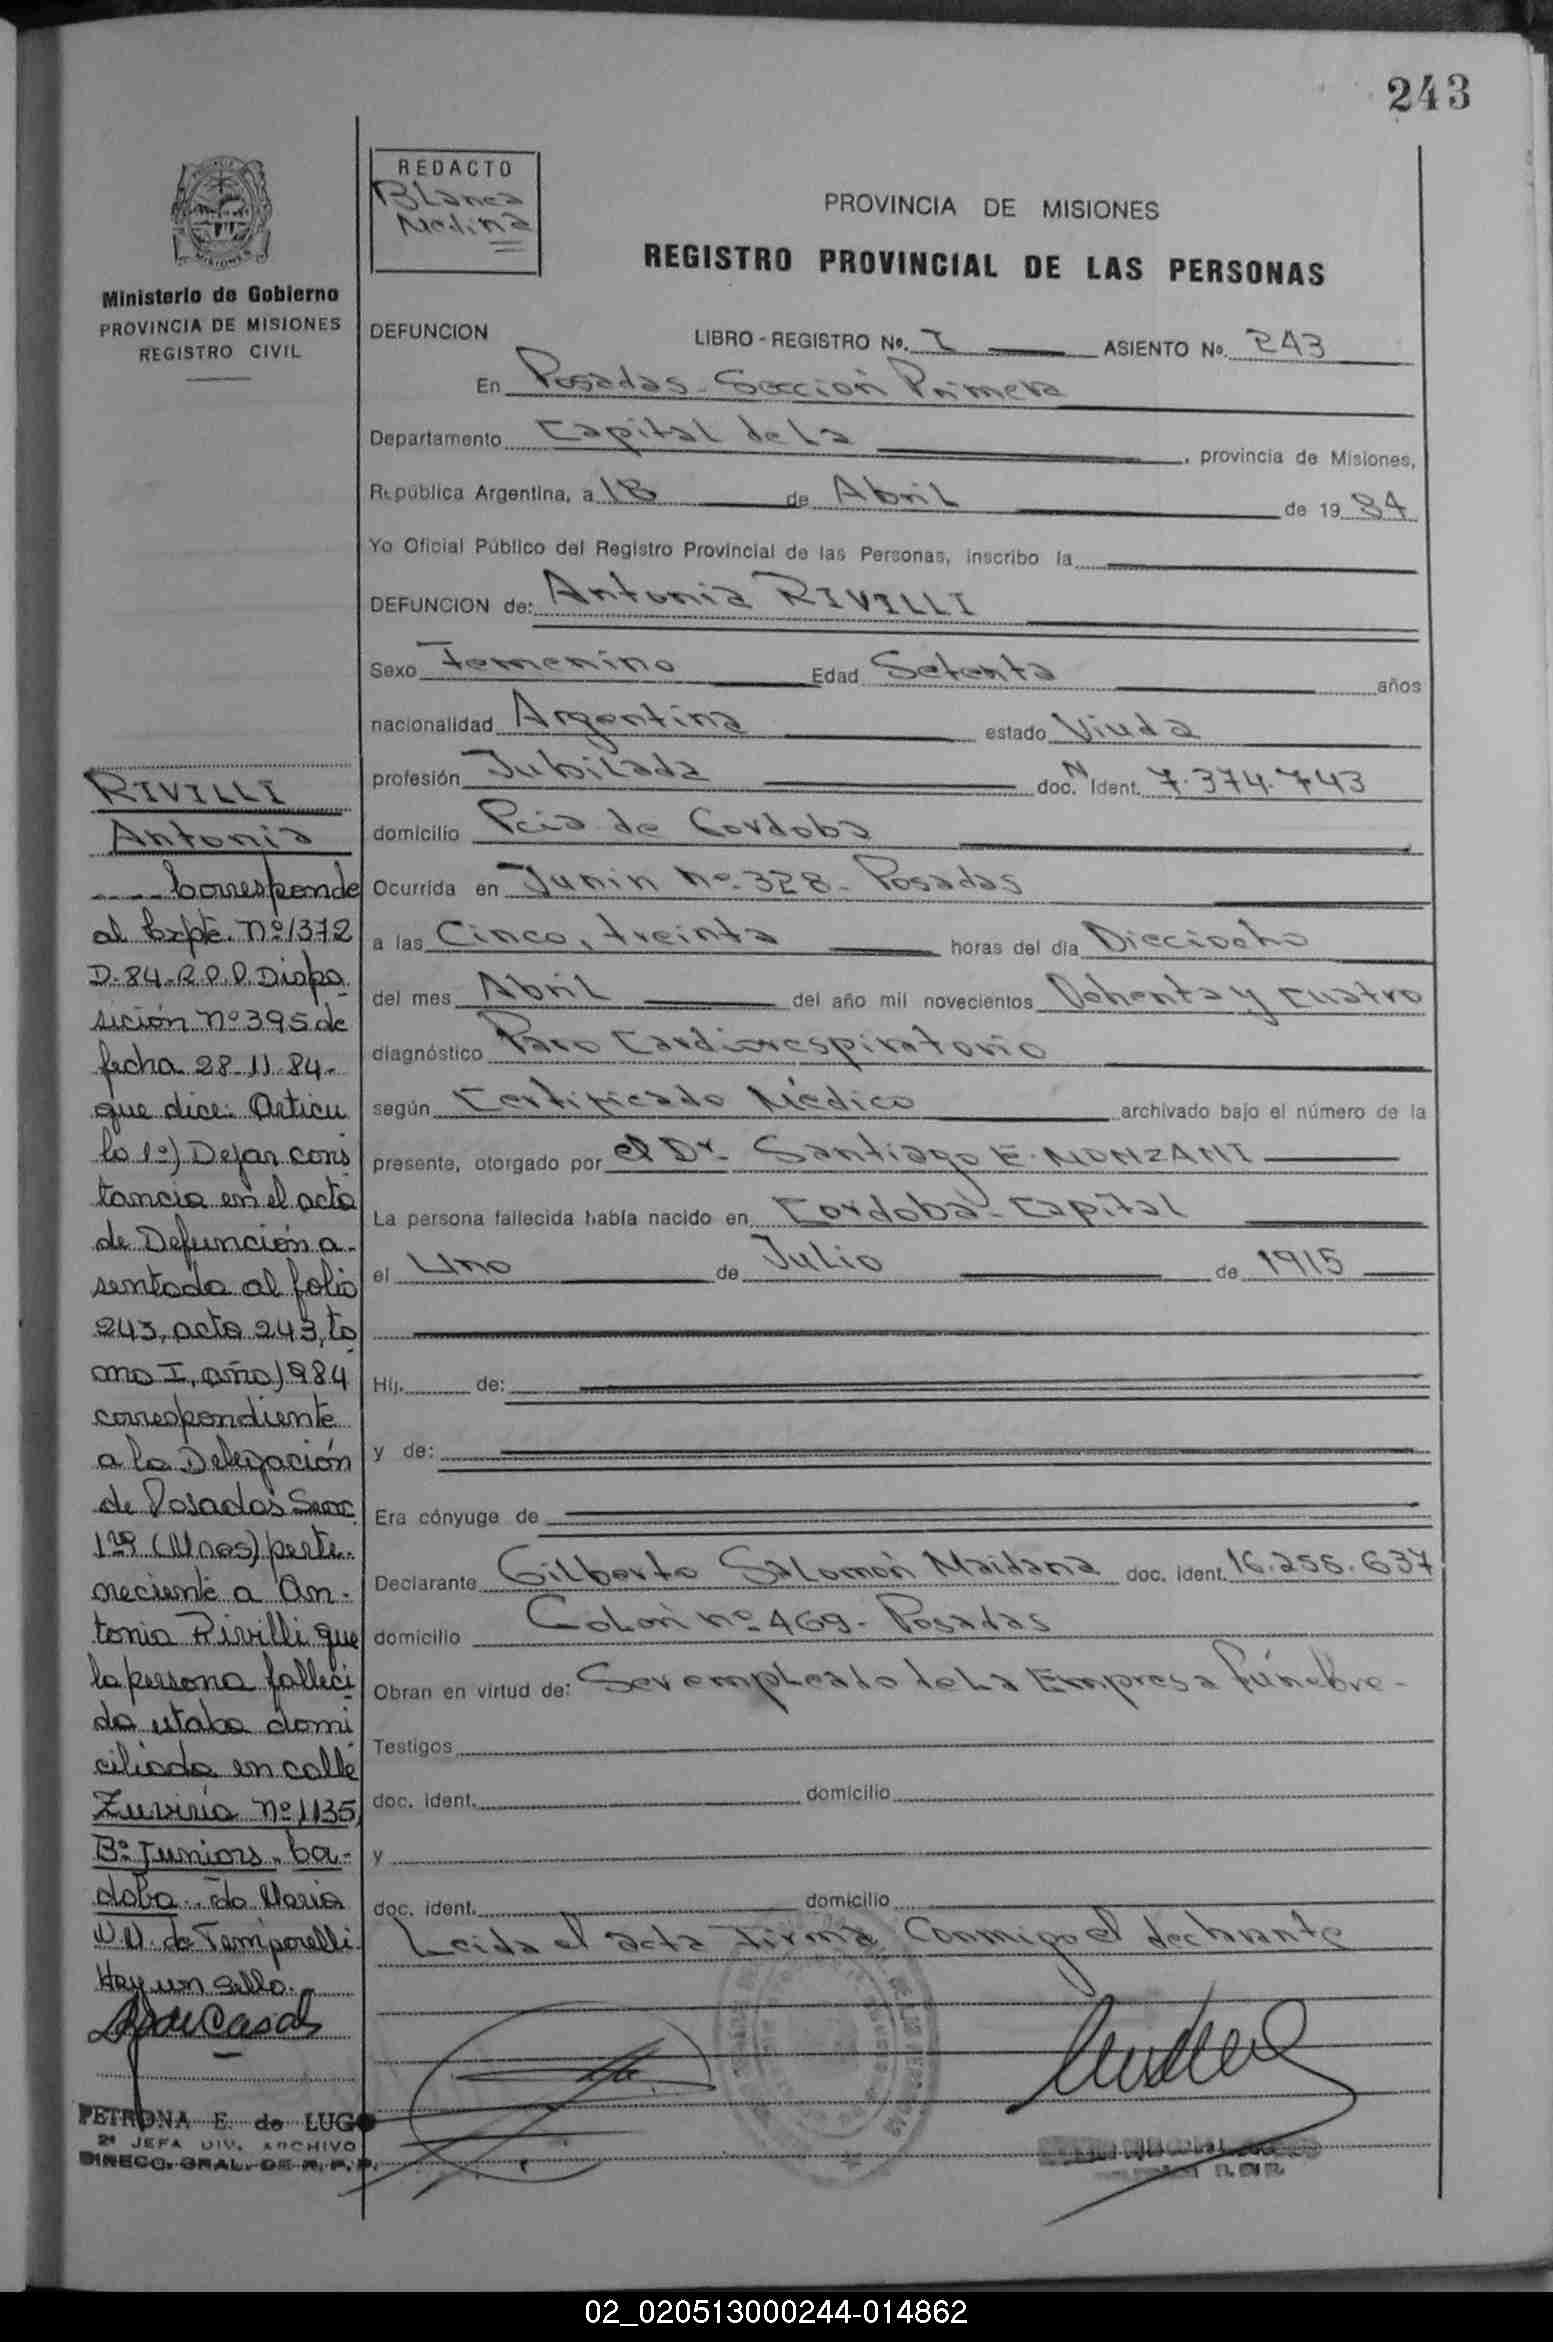 243
REDACTO
Blanca
Medina
PROVINCIA DE MISIONES
REGISTRO PROVINCIAL DE LAS PERSONAS
Ministerio de Gobierno
PROVINCIA DE MISIONES
REGISTRO CIVIL
DEFUNCION LIBRO - REGISTRO Nº. I ASIENTO Nº. 243
En Posadas - Sección Primera
Departamento Capital de La , provincia de Misiones,
República Argentina, a 18 de Abril de 19 84
Yo Oficial Público del Registro Provincial de las Personas, inscribo la
DEFUNCION de: Antonia RIVILLI
Sexo Femenino Edad Setenta años
nacionalidad Argentina estado Viuda
profesión Jubilada doc. N Ident. 7.374.743
domicilio Pcia de Cordoba
Ocurrida en Junin Nº 328 - Posadas
a las Cinco, treinta horas del día Dieciocho
del mes Abril del año mil novecientos Ochenta y cuatro
diagnóstico Paro Cardiorespiratorio
según Certificado Médico archivado bajo el número de la
presente, otorgado por el Dr. Santiago E. MONZANI
La persona fallecida había nacido en Cordoba - Capital
el Uno de Julio de 1915
Hij. de:
y de:
Era cónyuge de
Declarante Gilberto Salomón Maidana doc. ident. 16.255.637
domicilio Colon nº 469 - Posadas
Obran en virtud de: Ser empleado de La Empresa Fúnebre -
Testigos
doc. ident. domicilio
y
doc. ident. domicilio
Leida el acta Firma Conmigo el declarante
RIVILLI
Antonia
Corresponde
al Expte. Nº 1372
D-84-R.P.P. Dispo
sición nº 395 de
fecha 28-11-84-
que dice: Articu
lo 1º) Dejar cons
tancia en el acta
de Defunción a-
sentada al folio
243, acta 243, to
mo I, año 1984
correspondiente
a la Delegación
de Posadas Secc.
1ra (Mnes) perte-
neciente a An-
tonia Rivilli que
la persona falleci
da estaba domi
ciliada en calle
Zuviría nº 1135,
Bº Juniors. Co-
doba. .do Maria
de Temporelli
Hay un sello.
PETRONA E. de LUGO
2ª JEFA DIV. ARCHIVO
DIRECC. GRAL. DE R. P. P.
02_020513000244-014862